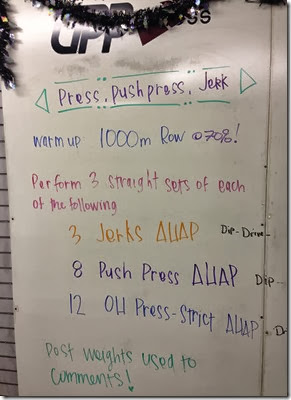 GPP
Press, Push press, Jerk
Warm up 1000m Row @ 70%!
Perform 3 straight sets of each
of the following
3 Jerks AHAP Dip-Drive-
8 Push Press AHAP Dip
12 OH Press-Strict AHAP
Post weights used to
comments!